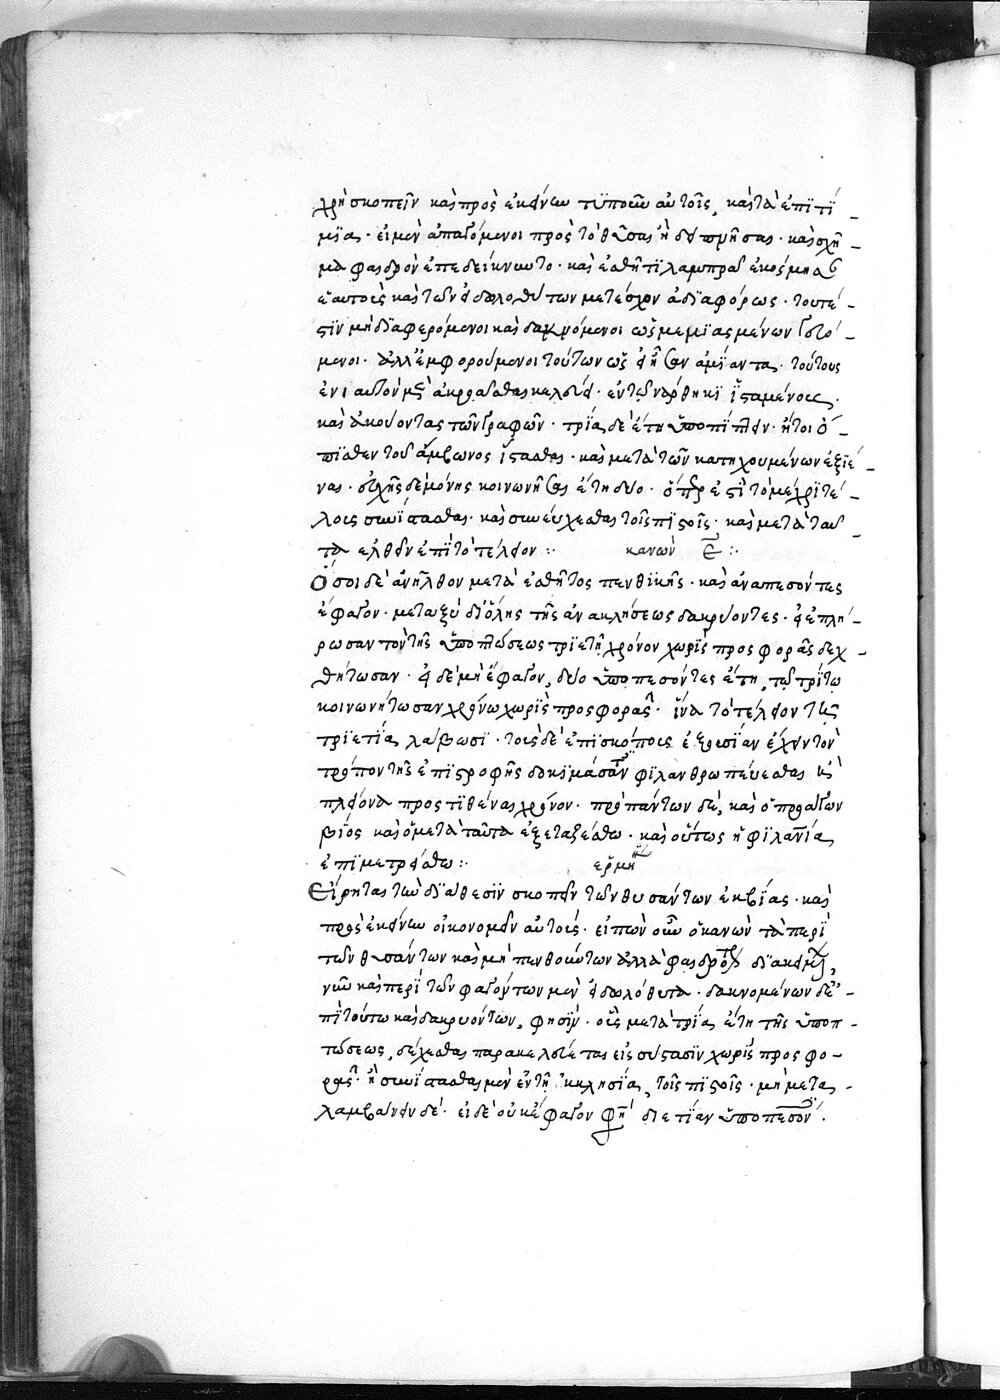 χρὴ σκοπεῖν καὶ πρὸς ἐκείνων τυποῦν αὐτοῖς, καὶ τὰ ἐπιτί_
μια · εἰ μὲν ἀπαγόμενοι πρὸς τὸ θῦσαι ἢ δειπνῆσαι · καὶ σχῆ_
μα φαιδρὸν ἐπεδείκνυντο · καὶ ἐσθῆτι λαμπρᾶ ἐκόσμησαν
ἑαυτοὺς καὶ τῶν εἰδωλοθύτων μετέσχον ἀδιαφόρως · τουτέ_
στιν μὴ διαφερόμενοι καὶ δακνόμενοι ὡς μεμιασμένων γευό_
μενοι · ἀλλ' ἐμφορούμενοι τούτων ὡς εἰ ἦσαν ἀμίαντα · τούτους
ἐνιαυτὸν μὲν ἀκροᾶσθαι κελεύει · ἐν τῶ νάρθηκι ἱσταμένους ·
καὶ ἀκούοντας τῶν γραφῶν · τρία δὲ ἔτη ὑποπίπτειν · ἤτοι ὀ_
πισθεν τοῦ ἄμβωνος ἵστασθαι · καὶ μετὰ τῶν κατηχουμένων ἐξιέ_
ναι · εὐχῆς δὲ μόνης κοινωνῆσαι ἔτη δύο · ὅπερ ἐστὶ τὸ μέχρι τέ_
λους συνίστασθαι · καὶ συνεύχεσθαι τοῖς πιστοῖς · καὶ μετὰ ταῦ_
τα ἐλθεῖν ἐπὶ τὸ τέλειον :· κανὼν ε :·
Ὅσοι δὲ ἀνῆλθον μετὰ ἐσθῆτος πενθικῆς · καὶ ἀναπεσόντες
ἔφαγον · μεταξὺ δι' ὅλης τῆς ἀνακλήσεως δακρύοντες · εἰ ἐπλή_
ρωσαν τὸν τῆς ὑποπτώσεως τριετῆ χρόνον χωρὶς προσφορᾶς δεχ_
θήτωσαν · εἰ δὲ μὴ ἔφαγον, δύο ὑποπεσόντες ἔτη, τῶ τρίτω
κοινωνήτωσαν χρόνω χωρὶς προσφορᾶς · ἵνα τὸ τέλειον τῆ
τριετία λάβωσι · τοὺς δὲ ἐπισκόπους ἐξουσίαν ἔχειν τὸν
τρόπον τῆς ἐπιστροφῆς δοκιμάσαντας φιλανθρωπεύεσθαι ἢ
πλείονα προστιθέναι χρόνον · πρὸ πάντων δὲ, καὶ ὁ προάγων
βίος καὶ ὁ μετὰ ταῦτα ἐξεταζέσθω · καὶ οὕτως ἡ φιλανία
ἐπιμετρείσθω :· ἑρμη
Εἴρηται τὴν διάθεσιν σκοπεῖν τῶν θυσάντων ἐκ βίας · καὶ
πρὸς ἐκείνων οἰκονομεῖν αὐτούς · εἰπὼν οὖν ὁ κανὼν τὰ περὶ
τῶν θυσάντων καὶ μὴ πενθούντων ἀλλὰ φαιδρῶς διακειμένων,
νῦν καὶ περὶ τῶν φαγόντων μὲν εἰδωλόθυτα · δακνομένων δὲ ἐ_
πὶ τούτω καὶ δακρυόντων, φησίν · οὓς μετὰ τρία ἔτη τῆς ὑποπ_
τώσεως, δέχεσθαι παρακελεύεται εἰς σύστασιν χωρὶς προσφο_
ρᾶς · ἢ συνίστασθαι μὲν ἐν τῆ ἐκκλησία, τοῖς πιστοῖς · μὴ μετα_
λαμβάνειν δέ · εἰ δὲ οὐκ ἔφαγον φη διετίαν ὑποπεσόν ·